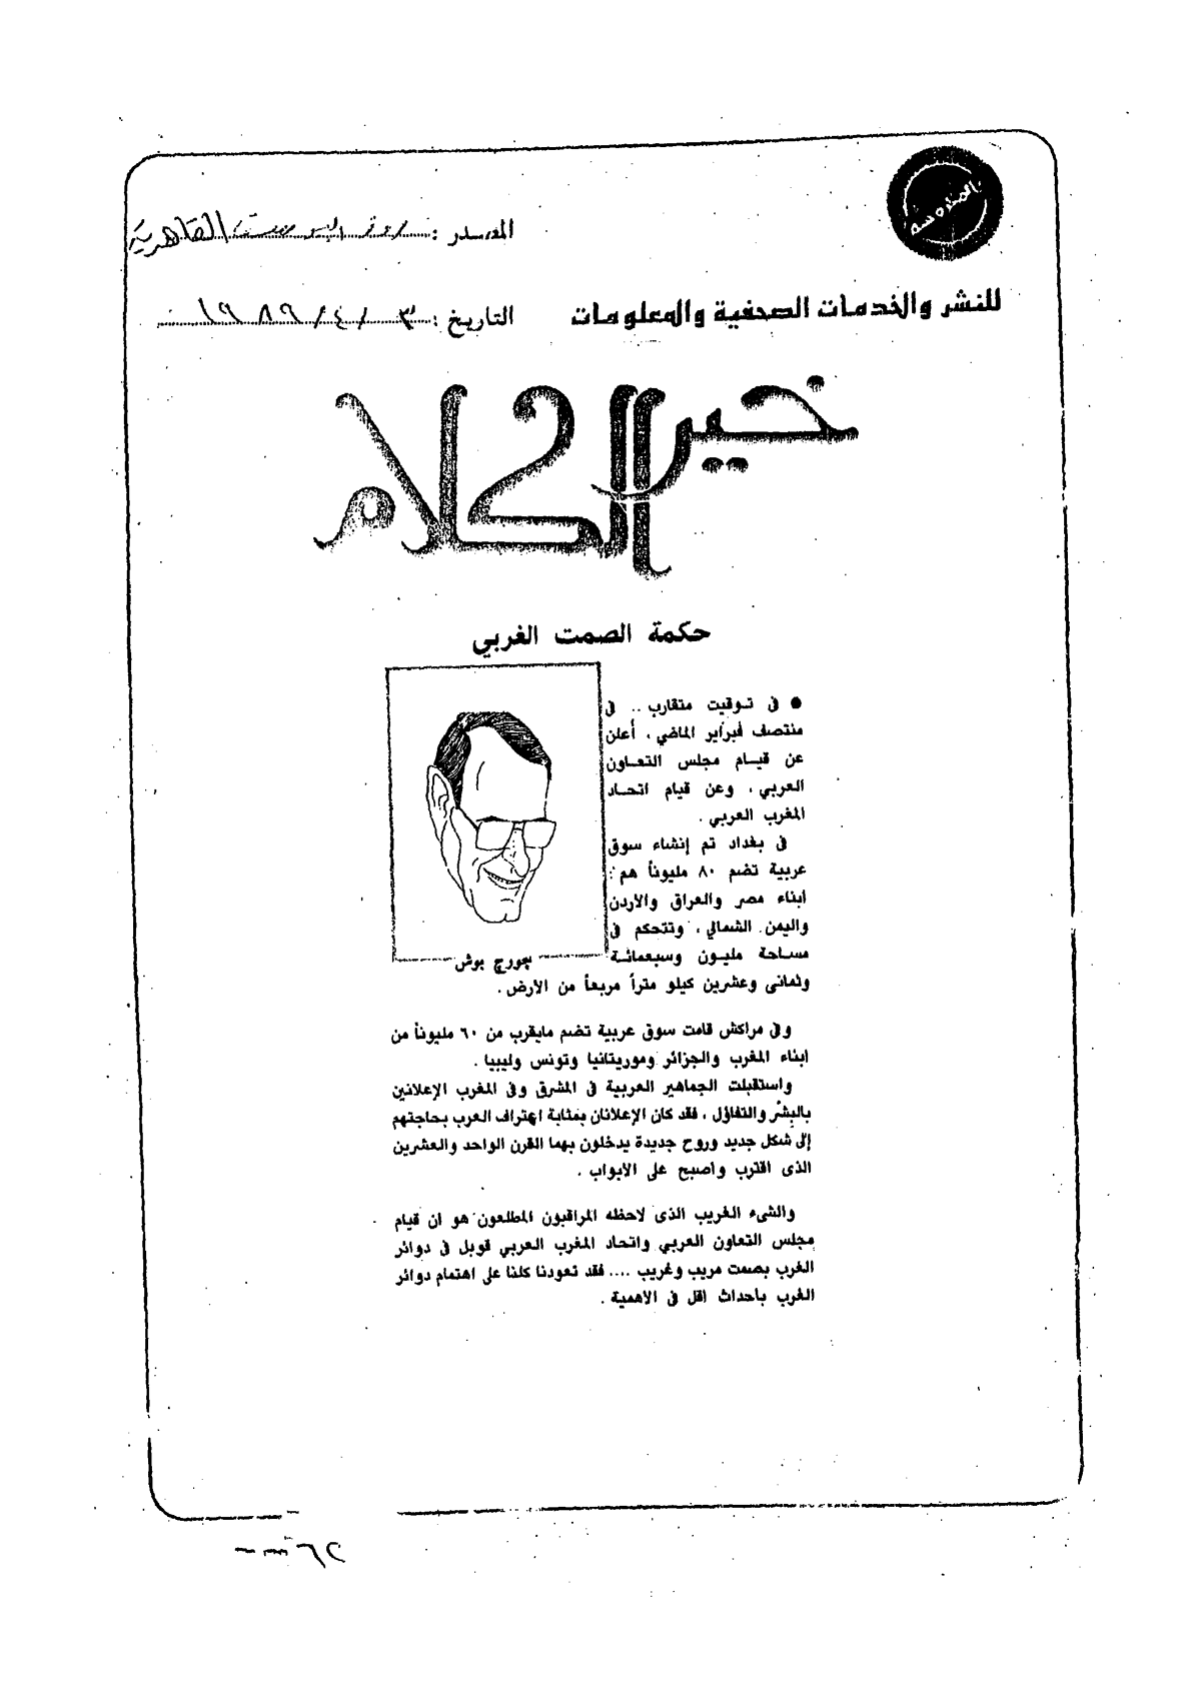 المصدر : روز اليوسف القاهرية
للنشر والخدمات الصحفية والمعلومات
التاريخ : ٣ / ٤ / ١٩٨٩
خير الكلام
حكمة الصمت الغربي
● في توقيت متقارب .. في
منتصف فبراير الماضي ، أعلن
عن قيام مجلس التعاون
العربي ، وعن قيام اتحاد
المغرب العربي .
في بغداد تم إنشاء سوق
عربية تضم ٨٠ مليوناً هم :
ابناء مصر والعراق والاردن
واليمن الشمالي ، وتتحكم في
مساحة مليون وسبعمائة
وثماني وعشرين كيلو متراً مربعاً من الأرض .
جورج بوش
وفي مراكش قامت سوق عربية تضم مايقرب من ٦٠ مليوناً من
ابناء المغرب والجزائر وموريتانيا وتونس وليبيا .
واستقبلت الجماهير العربية في المشرق وفي المغرب الإعلانين
بالبشر والتفاؤل ، فقد كان الإعلانان بمثابة اعتراف العرب بحاجتهم
إلى شكل جديد وروح جديدة يدخلون بهما القرن الواحد والعشرين
الذى اقترب واصبح على الابواب .
والشىء الغريب الذى لاحظه المراقبون المطلعون هو ان قيام
مجلس التعاون العربي واتحاد المغرب العربي قوبل في دوائر
الغرب بصمت مريب وغريب .... فقد تعودنا كلنا على اهتمام دوائر
الغرب باحداث اقل في الاهمية .